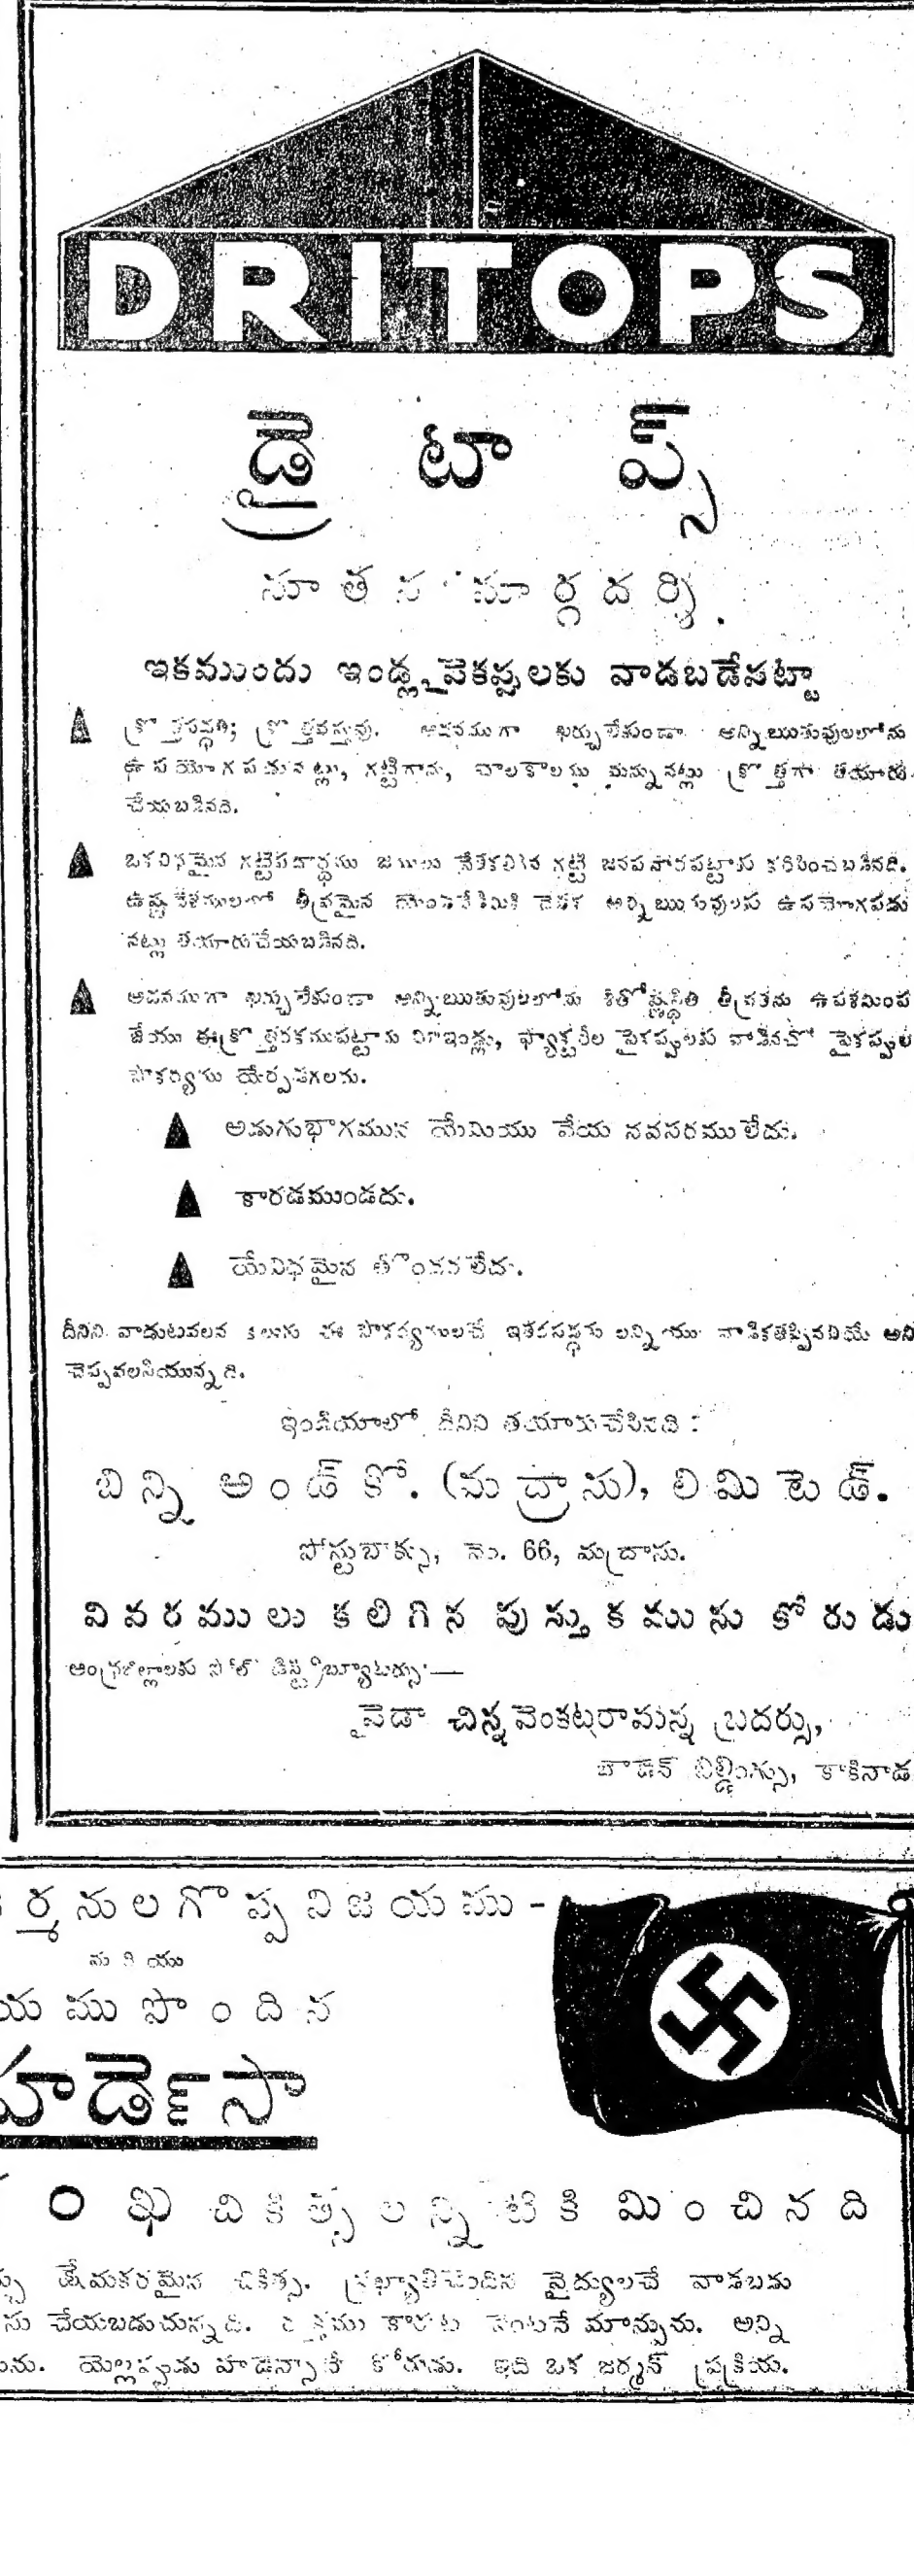 DRITOPS
డ్రైటాప్స్
నూతన మార్గదర్శి.
ఇకముందు ఇండ్ల పైకప్పులకు వాడబడేపట్టా
క్రొత్తపద్ధతి; క్రొత్తవస్తువు. అదనముగా ఖర్చులేకుండా అన్నిఋతువులలోను
ఉపయోగపడునట్లు, గట్టిగాను, చాలకాలము మన్నునట్లు క్రొత్తగా తయారు
చేయబడినది.
ఒకవిధమైన గట్టిపదార్థము
ఉష్ణ తీవ్రమైన అన్నిఋతువులకు ఉపయోగపడు
నట్లు తయారుచేయబడినది.
అదనముగా ఖర్చులేకుండా అన్నిఋతువులలోను శీతోష్ణస్థితి తీవ్రతను ఉపశమింప
జేయు ఈక్రొత్తరకముపట్టాను ఇండ్లు, ఫ్యాక్టరీల పైకప్పులకు వాడినచో పైకప్పుల
సౌకర్యము యేర్పడగలను.
అడుగుభాగమున యేమియు వేయ నవసరములేదు.
కారడముండదు.
యేవిధమైన తొందరలేదు.
దీనిని వాడుటవలన కలుగు ఈ సౌకర్యములచే
చెప్పవలసియున్నది.
ఇండియాలో దీనిని తయారుచేసినది :
బిన్ని అండ్ కో. (మద్రాసు), లిమిటెడ్.
పోస్టుబాక్సు, నెం. 66, మద్రాసు.
వివరములు కలిగిన పుస్తుకమును కోరుడు
ఆంధ్రజిల్లాలకు సోల్ డిస్ట్రిబ్యూటర్సు:—
పైడా చిన్నవెంకటరామన్న బ్రదర్సు,
బిల్డింగ్సు, కాకినాడ
ర్మనులగొప్ప విజయము -
మరియు
యముపొందిన
హాడెన్సా
చికిత్సలన్నిటికి మించినది
క్షేమకరమైన చికిత్స. ప్రఖ్యాతిచెందిన వైద్యులచే వాడబడు
ను చేయబడుచున్నది. రక్తము కారుట వెంటనే మాన్పును. అన్ని
ను. యెల్లప్పుడు హాడెన్సానే కోరుడు. ఇది ఒక జర్మన్ ప్రక్రియ.